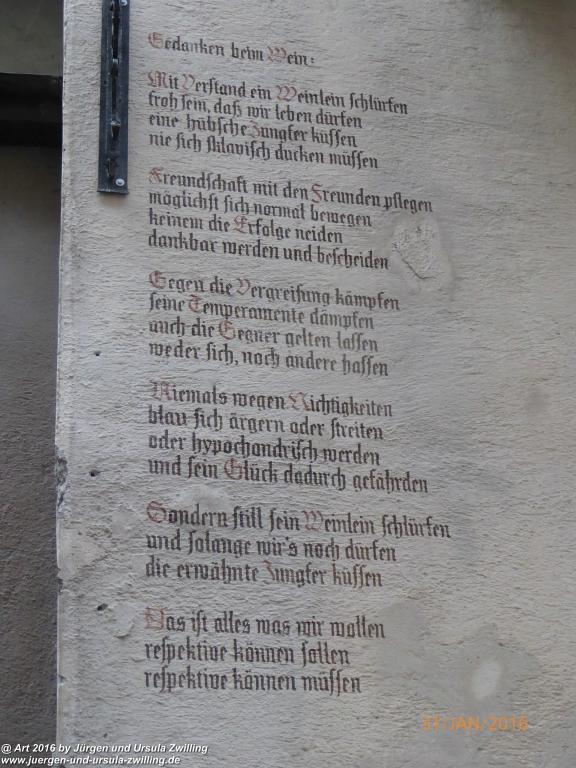 Gedanken beim Wein:
Mit Verstand ein Weinlein schlürfen
froh sein, daß wir leben dürfen
eine hübsche Jungfer küssen
nie sich sklavisch ducken müssen
Freundschaft mit den Freunden pflegen
möglichst sich normal bewegen
keinem die Erfolge neiden
dankbar werden und bescheiden
Gegen die Vergreisung kämpfen
seine Temperamente dämpfen
auch die Gegner gelten lassen
weder sich, noch andere hassen
Niemals wegen Nichtigkeiten
blau sich ärgern oder streiten
oder hypochondrisch werden
und sein Glück dadurch gefährden
Sondern still sein Weinlein schlürfen
und solange wir's noch dürfen
die erwähnte Jungfer küssen
Das ist alles was wir wollen
respektive können sollen
respektive können müssen
31/JAN/2016
@ Art 2016 by Jürgen und Ursula Zwilling
www.juergen-und-ursula-zwilling.de